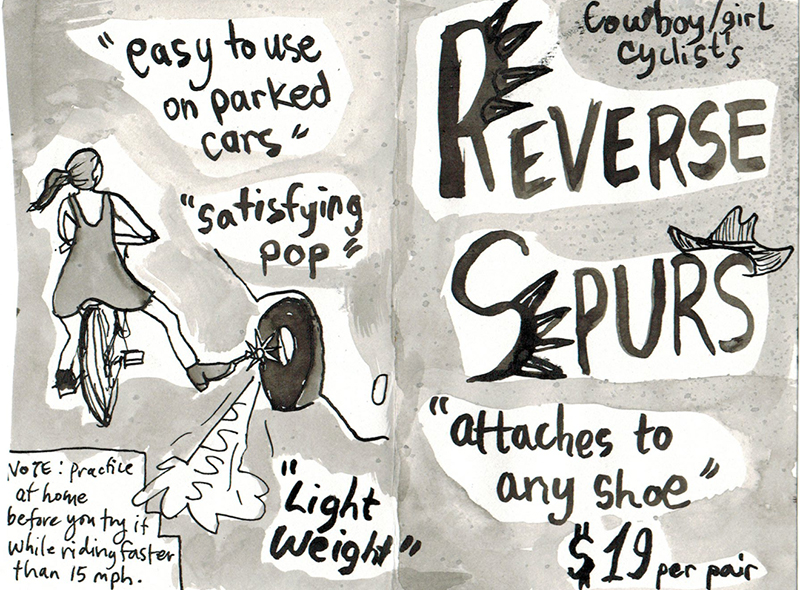 "easy to use
on parked
cars"
"satisfying
pop"
"Light
weight"
NOTE: practice
at home
before you try it
while riding faster
than 15 mph.
Cowboy/girl
cyclist's
REVERSE
SPURS
"attaches to
any shoe"
$19 per pair